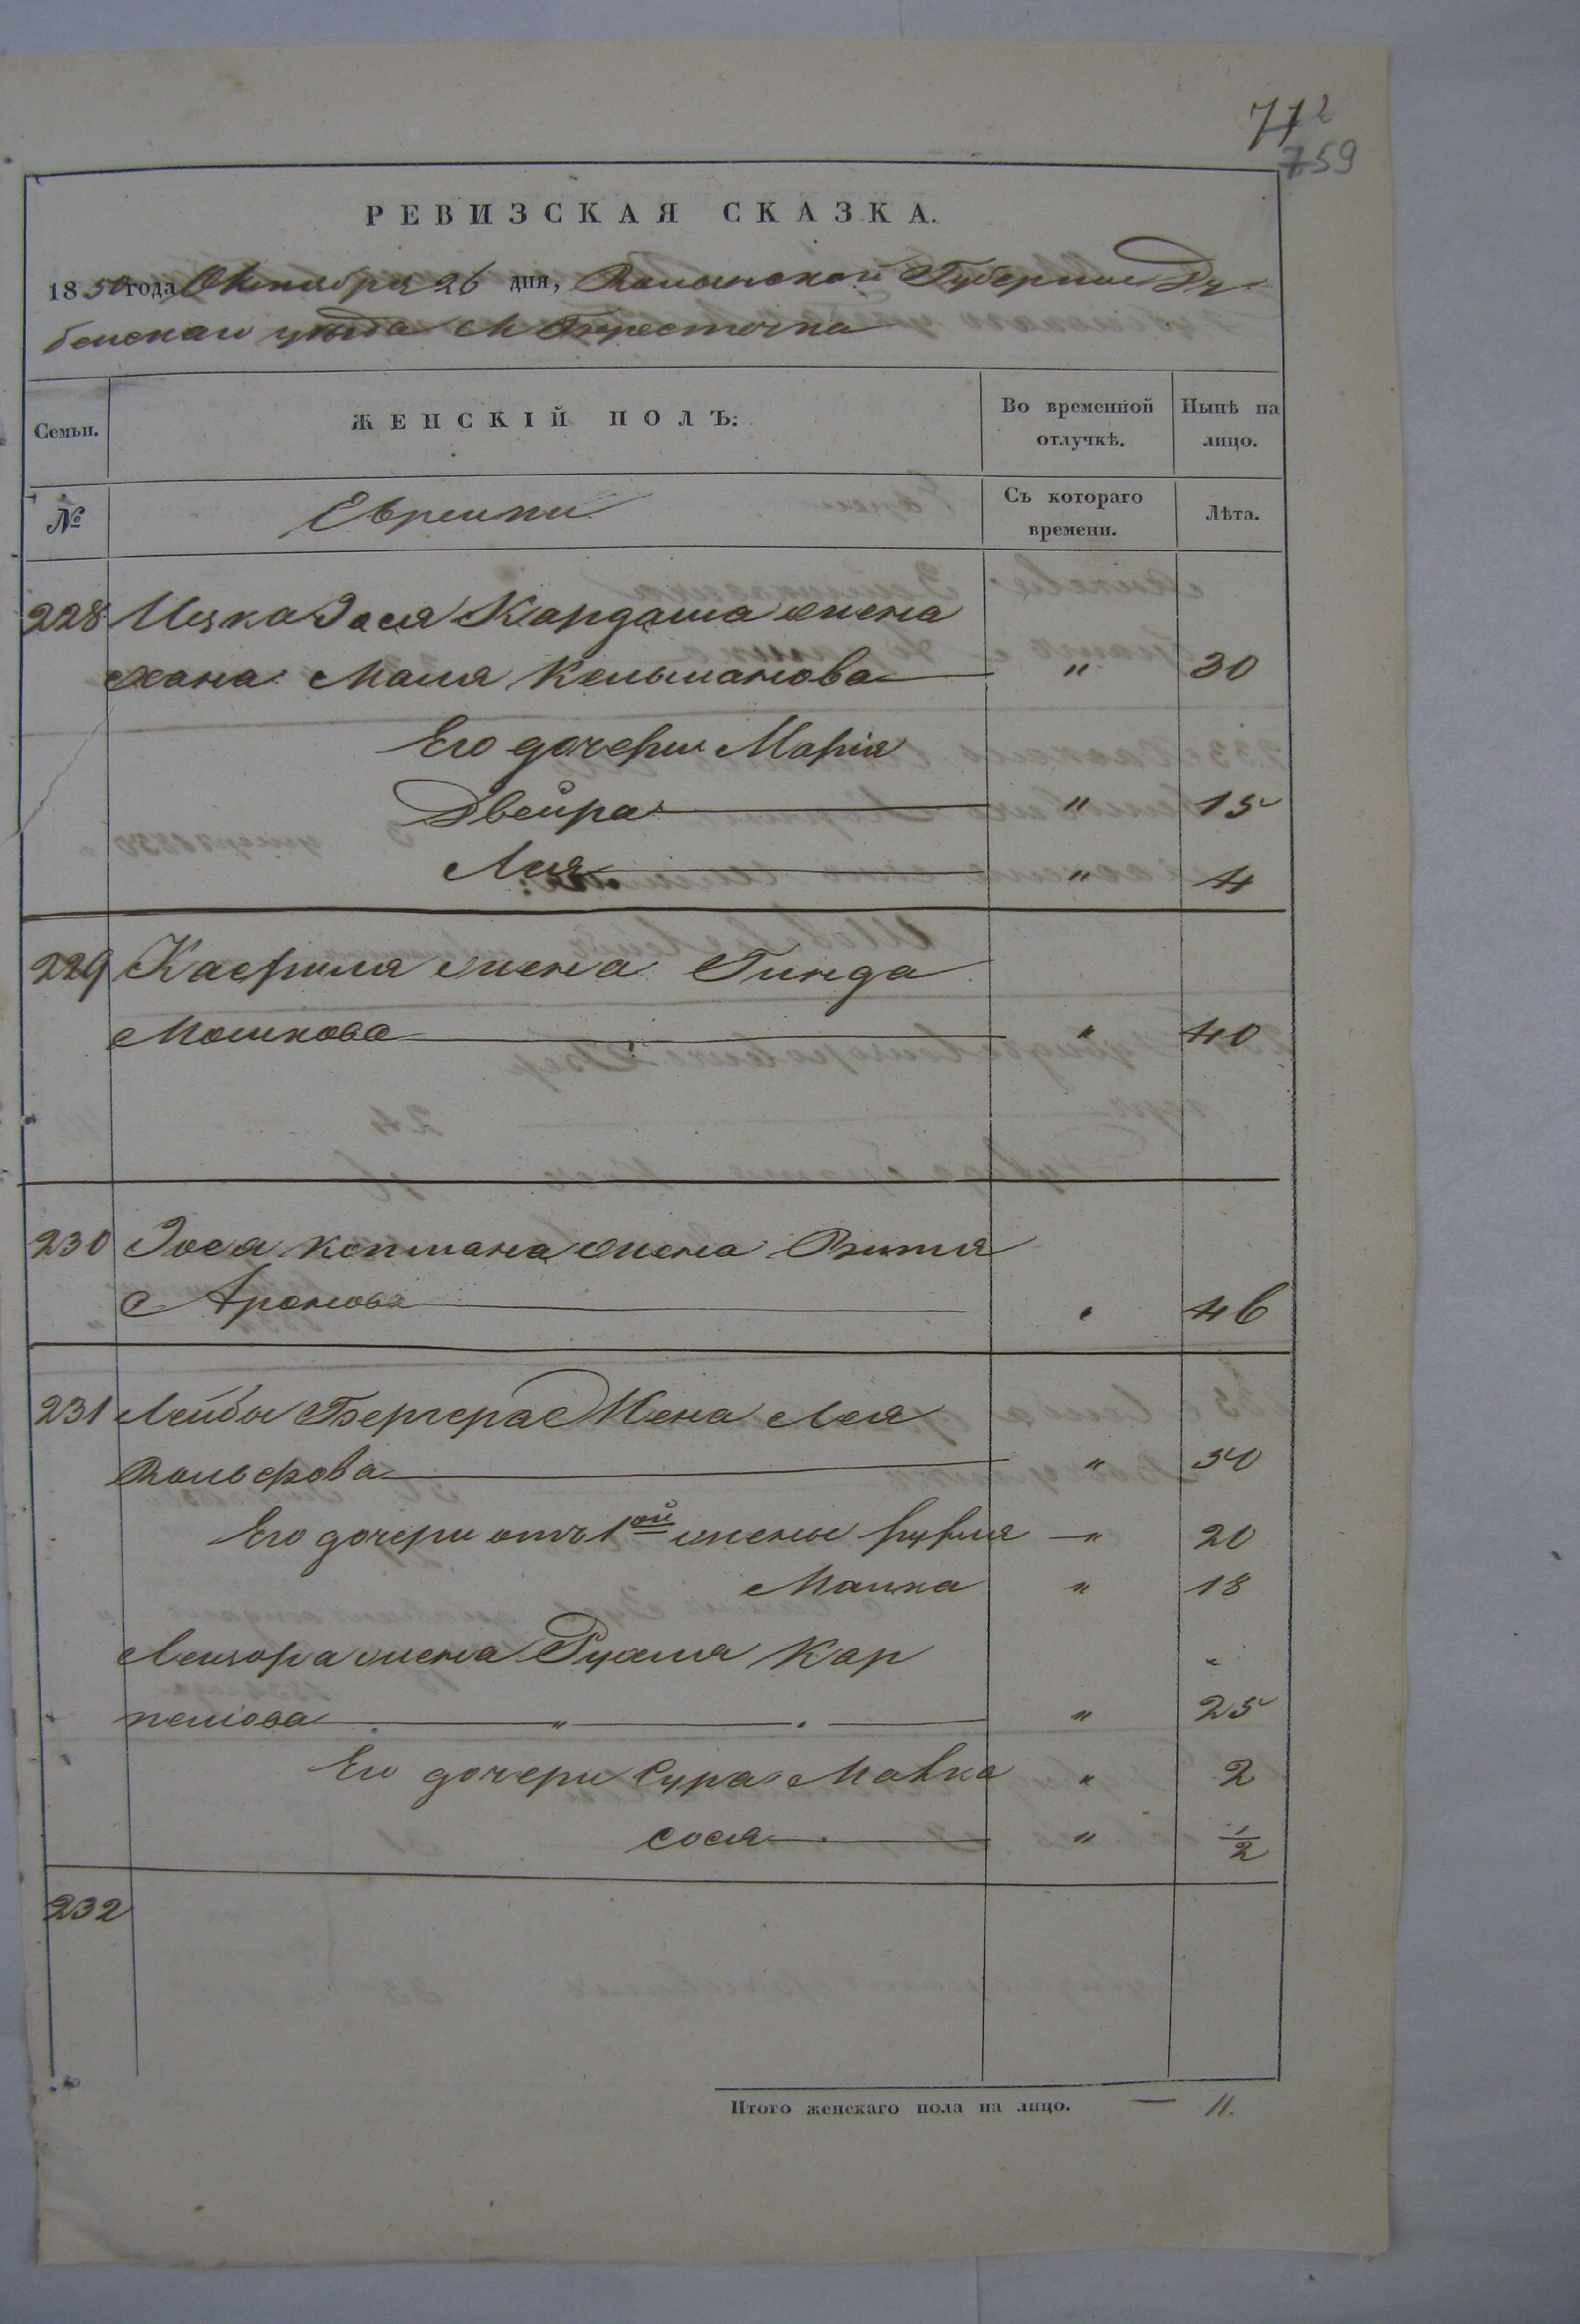 712
759
РЕВИЗСКАЯ СКАЗКА.
1850 года Октября 26 дня, Волынской Губернии Ду-
бенскаго уѣзда М Берестечка
Семьи.
ЖЕНСКІЙ ПОЛЪ:
Во временной отлучкѣ.
Нынѣ на лицо.
№
Еврейки
Съ котораго времени.
Лѣта.
228 Ицка Іося Кардаша жена
Хана Маля Кельманова " 30
Его дочери Марія
Двейра " 15
Лия " 4
229 Касриля жена Гинда
Мошкова " 40
230 Іося Копмана жена Витля
Аронова " 46
231 Лейбы Бергера Жена Лея
Вольфова " 50
Его дочери отъ 1ой жены Фрума " 20
Малка " 18
Лейзора жена Рухля Кар
пелiова " 25
Его дочери Сура Малка " 2
Сося " 1/2
232
Итого женскаго пола на лицо. — 11.